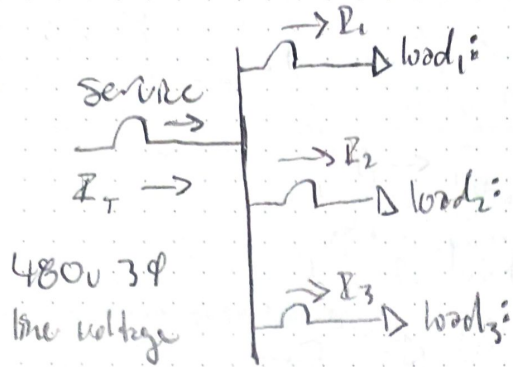 I₁
load₁:
service
I₂
I_T
load₂:
480v 3φ
line voltage
I₃
load₃: